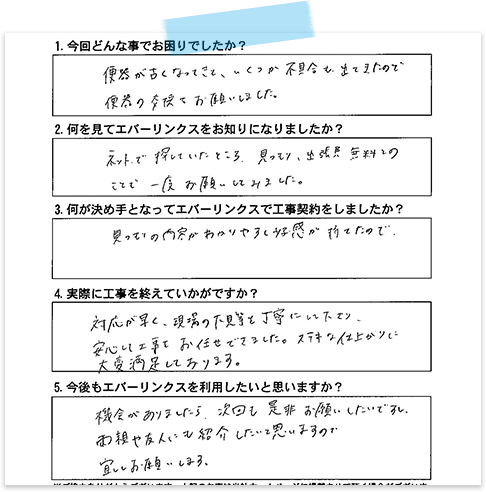 1. 今回どんな事でお困りでしたか？
便器が古くなってきて、いくつか不具合も出てきたので
便器の交換をお願いしました。
2. 何を見てエバーリンクスをお知りになりましたか？
ネットで探していたところ、見つもり、出張費無料との
ことで一度お願いしてみました。
3. 何が決め手となってエバーリンクスで工事契約をしましたか？
見つもりの内容がわかりやすく好感が持てたので、
4. 実際に工事を終えていかがですか？
対応が早く、現場の下見等も丁寧にして下さり、
安心して工事をお任せできました。ステキな仕上がりに
大変満足しております。
5. 今後もエバーリンクスを利用したいと思いますか？
機会がありましたら、次回も是非お願いしたいですし、
両親や友人にも紹介したいと思いますので
宜しくお願いします。